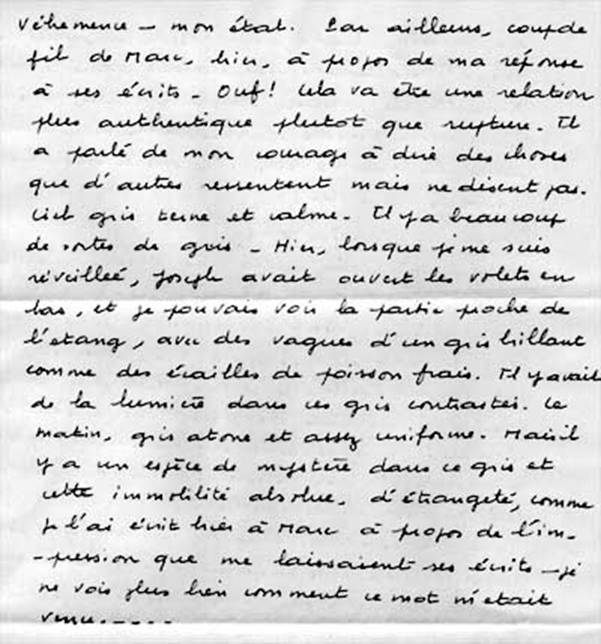 véhemence - mon état. Par ailleurs, coup de
fil de Marc, hier, à propos de ma réponse
à ses écrits - Ouf! Cela va être une relation
plus authentique plutot que rupture. Il
a parlé de mon courage à dire des choses
que d'autres ressentent mais ne disent pas.
Ciel gris terne et calme - Il y a beaucoup
de sortes de gris - Hier, lorsque je me suis
réveilleé, Joseph avait ouvert les volets en
bas, et je pouvais voir la partie proche de
l'etang, avec des vagues d'un gris brillant
comme des écailles de poisson frais. Il y avait
de la lumière dans ces gris contrastés. Ce
matin, gris atone et assez uniforme. Mais il
y a un espèce de mystère dans ce gris et
cette immobilité absolue. d'étrangeté, comme
je l'ai écrit hier à Marc à propos de l'im-
-pression que me laissaient ses écrits - je
ne vois plus bien comment ce mot m'était
venu.----